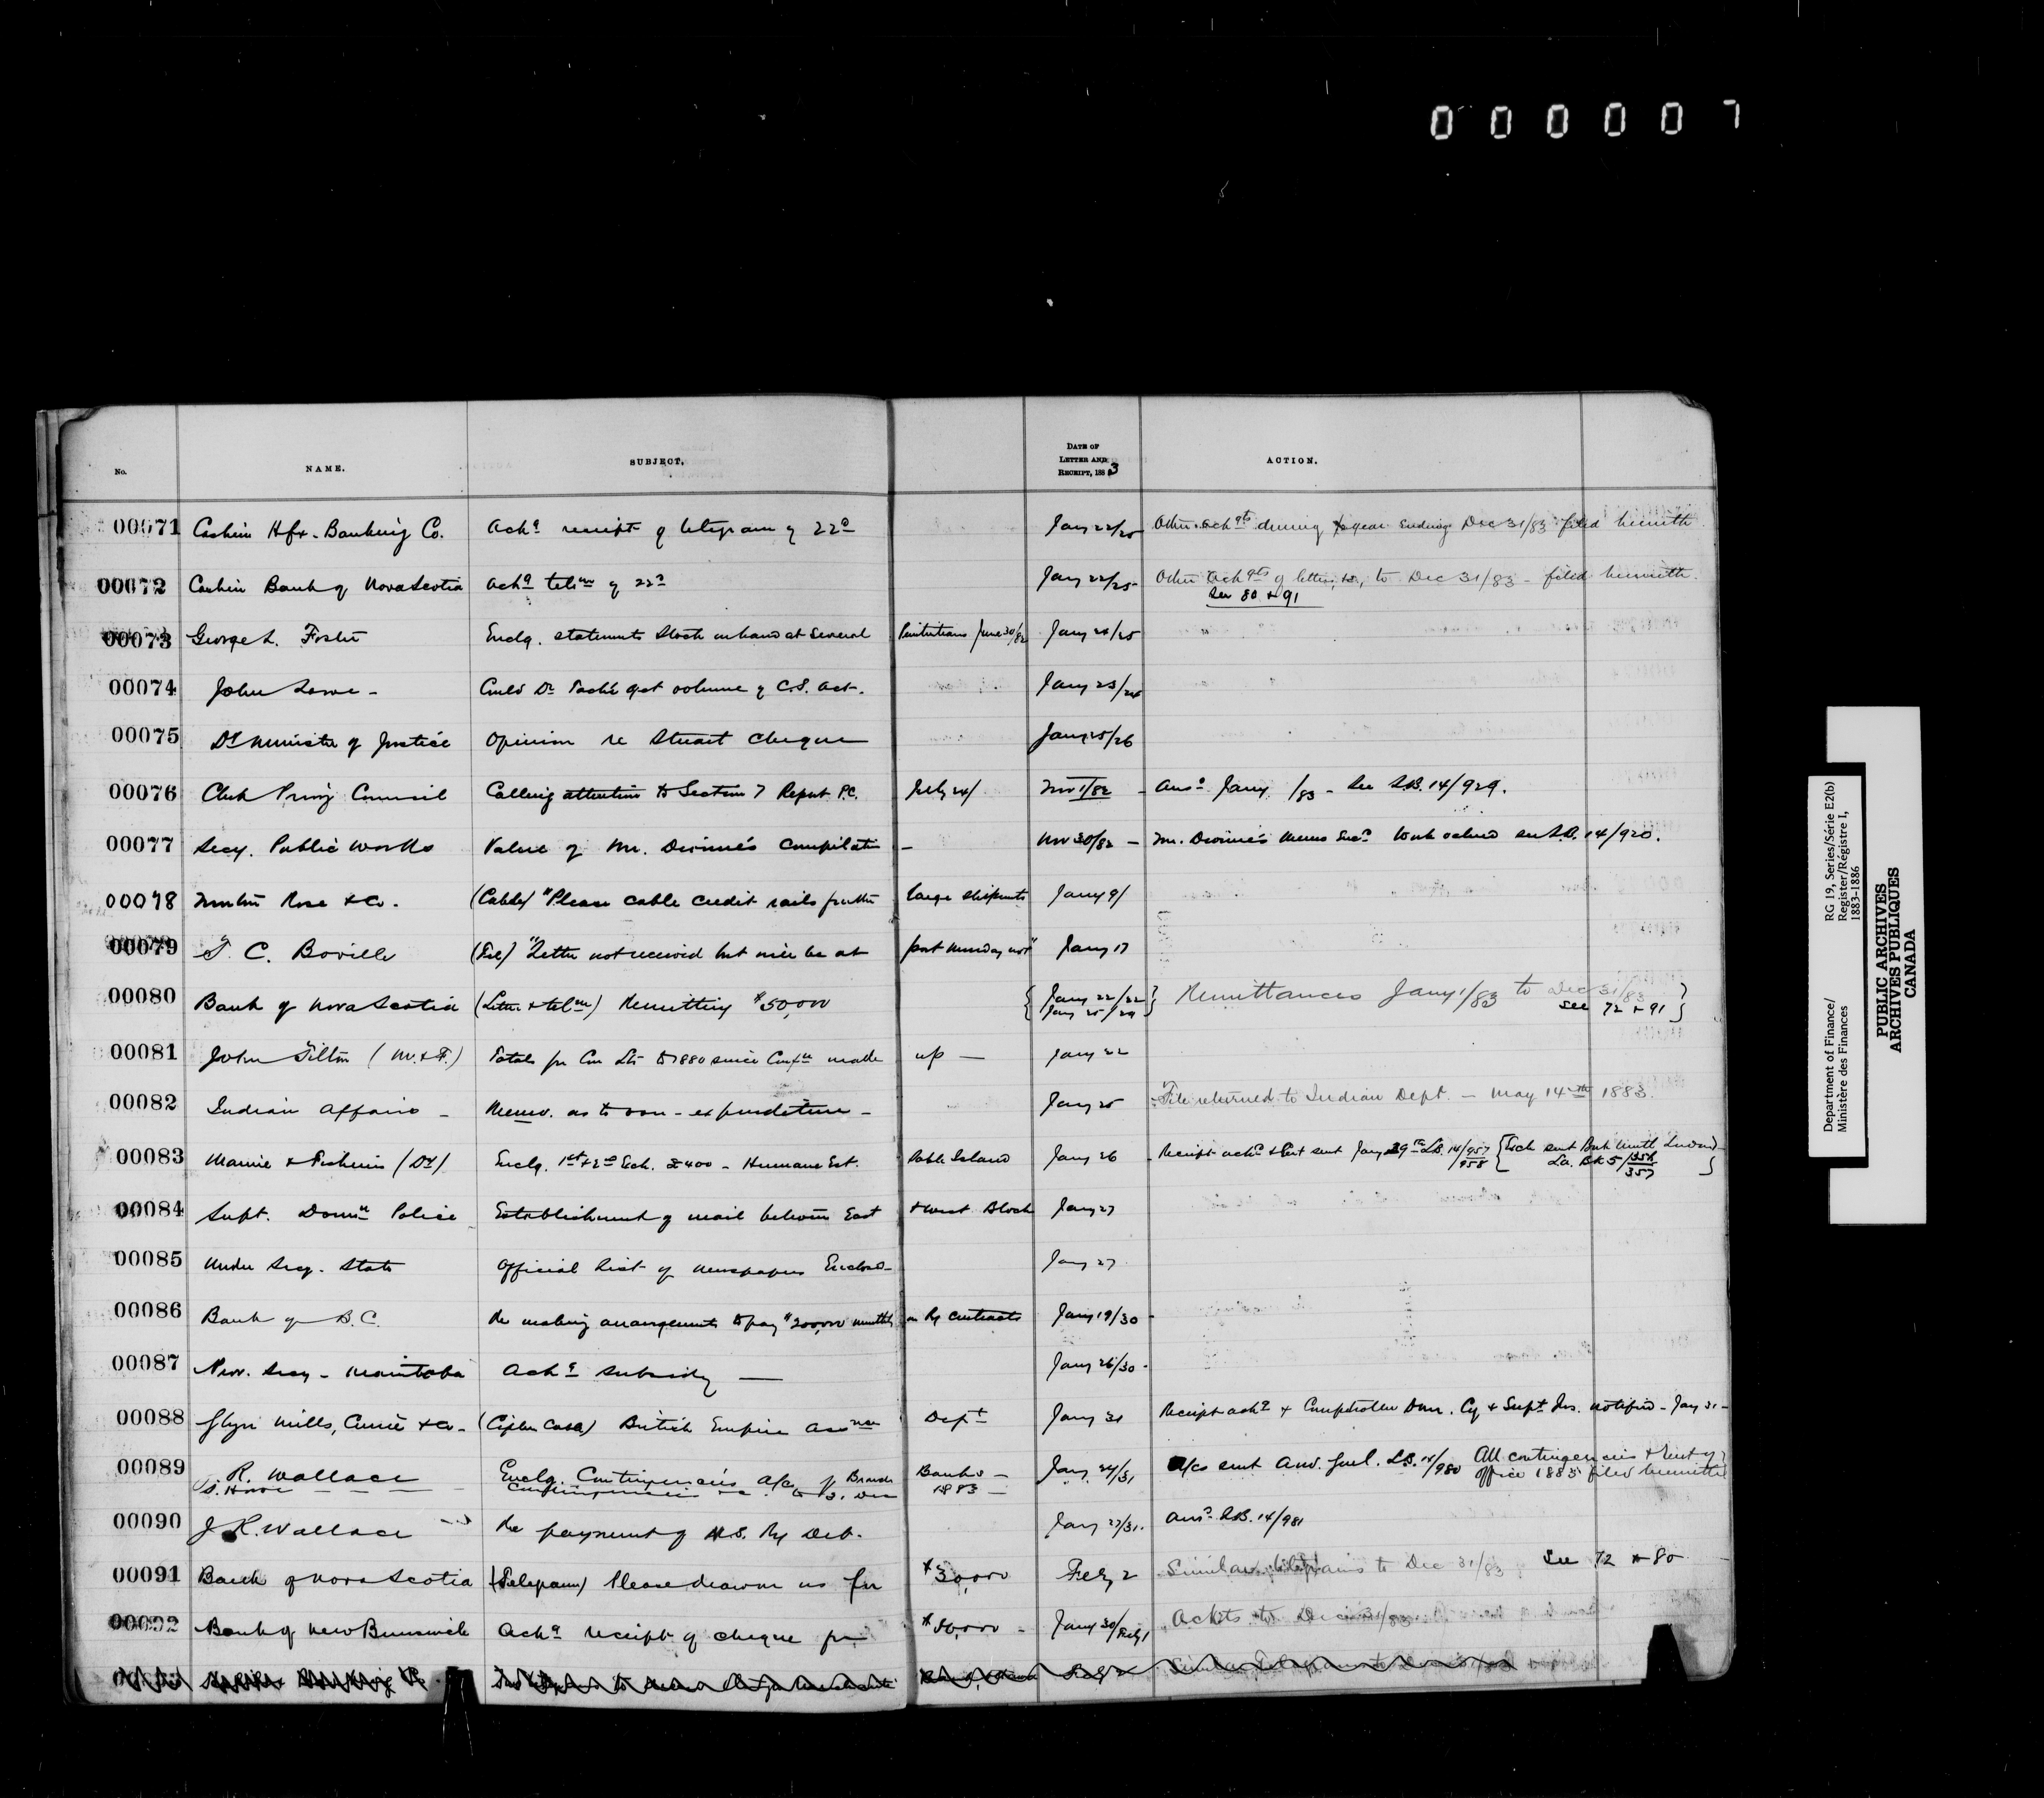 000007
No. NAME. SUBJECT. DATE OF LETTER AND RECEIPT, 1883 ACTION.
00071 Cashier Hfx. Banking Co. Ackg receipt of telegram of 22d Jany 22/25 Other ackgts during year ending Dec 31/83 filed herewith
00072 Cashier Bank of Nova Scotia Ackg telm of 22d Jany 22/25 Other ackgts of letters, to Dec 31/83 - filed herewith.
See 80 & 91
00073 George L. Foster Enclg. statements Stock on hand at Several Penitentiaries June 30/82 Jany 24/25
00074 John Lowe - Could Dr Taché get volume of C.S. Act. Jany 23/24
00075 Dy Minister of Justice Opinion re Stuart Cheque Jany 25/26
00076 Clerk Privy Council Calling attention to Section 7 Report P.C. July 24/ Nov 1/82 - Ansd Jany /83 - See L.B. 14/929.
00077 Secy. Public Works Value of Mr. Dionne's Compilation - Nov 30/82 - Mr. Dionne's Memo Encd L.B. 14/920.
00078 Morton Rose & Co. (Cable) "Please cable credit rails further large shipments Jany 9/
00079 T. C. Boville (Tel) "Letter not received but will be at post Monday" Jany 17
00080 Bank of Nova Scotia (Letter & telm) Remitting $50,000 { Jany 22/22 Jany 25/29 } Remittances Jany 1/83 to Dec 31/83
see 72 & 91 }
00081 John Tilton (M. & F.) Totals for to 1880 since made up - Jany 22
00082 Indian Affairs - Memo. as to non-expenditure - Jany 25 File returned to Indian Dept. - May 14th 1883.
00083 Marine & Fisheries (Dy) Enclg. 1st & 2d Exch. £400 - Humane Est. Sable Island Jany 26 - Receipt ackd & Cert sent Jany 29th L.B. 14/957 958 { Exch sent Bank Montl London
La. Bk 5/356 357 }
00084 Supt. Domn Police Establishment of mail between East & West Block Jany 27
00085 Under Secy. State Official List of Newspapers Enclosed - Jany 27
00086 Bank of B.C. Re making arrangements to pay $200,000 monthly on Ry Contracts Jany 19/30
00087 Prov. Secy - Manitoba Ackg subsidy - Jany 26/30 -
00088 Glyn Mills, Currie & Co. (Cipher Cable) British Empire Dept Jany 31 Receipt ackd & Comptroller Dom. Cy & Supt Ins. notified - Jany 31 -
00089 R. Wallace Enclg. Contingencies A/c Branch Banks - Jany 24/31 A/cs sent Aud. Genl. L.B. 14/980 All contingencies & rent of
1883 office 1883 filed herewith
00090 J. R. Wallace Re payment of Ry Deb. Jany 27/31. Ansd L.B. 14/981
00091 Bank of Nova Scotia (Telegram) Please draw on us for $30,000 Feby 2 Similar telegrams to Dec 31/83 See 72 & 80
00092 Bank of New Brunswick Ackg receipt of cheque for $50,000 - Jany 30/Feby 1 Ackts to Dec 31/83
Department of Finance/ RG 19, Series/Série E2(b)
Ministère des Finances Register/Régistre I,
1883-1886
PUBLIC ARCHIVES
ARCHIVES PUBLIQUES
CANADA